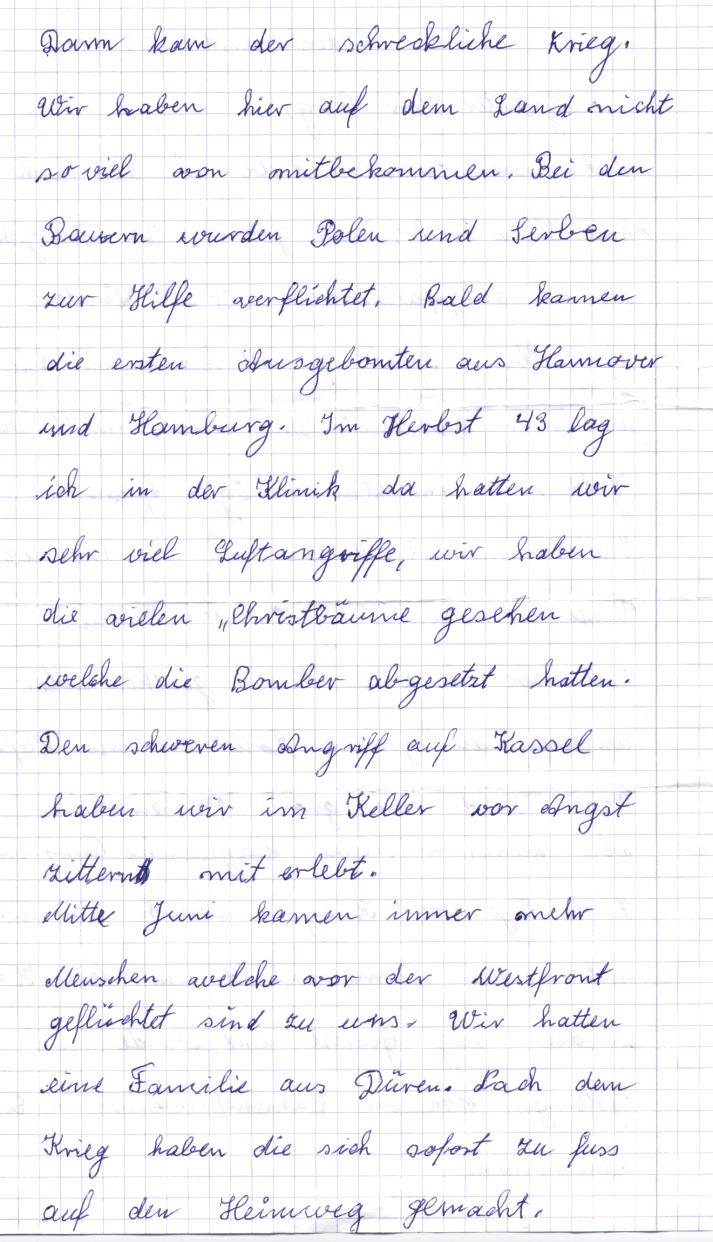 Dann kam der schreckliche Krieg.
Wir haben hier auf dem Land nicht
so viel von mitbekommen. Bei den
Bauern wurden Polen und Serben
zur Hilfe verflichtet. Bald kamen
die ersten Ausgebomten aus Hannover
und Hamburg. Im Herbst 43 lag
ich in der Klinik da hatten wir
sehr viel Luftangriffe, wir haben
die vielen „Christbäume gesehen
welche die Bomber abgesetzt hatten.
Den schweren Angriff auf Kassel
haben wir im Keller vor Angst
zitternd mit erlebt.
Mitte Juni kamen immer mehr
Menschen welche vor der Westfront
geflüchtet sind zu uns. Wir hatten
eine Familie aus Düren. Nach dem
Krieg haben die sich sofort zu fuss
auf den Heimweg gemacht.